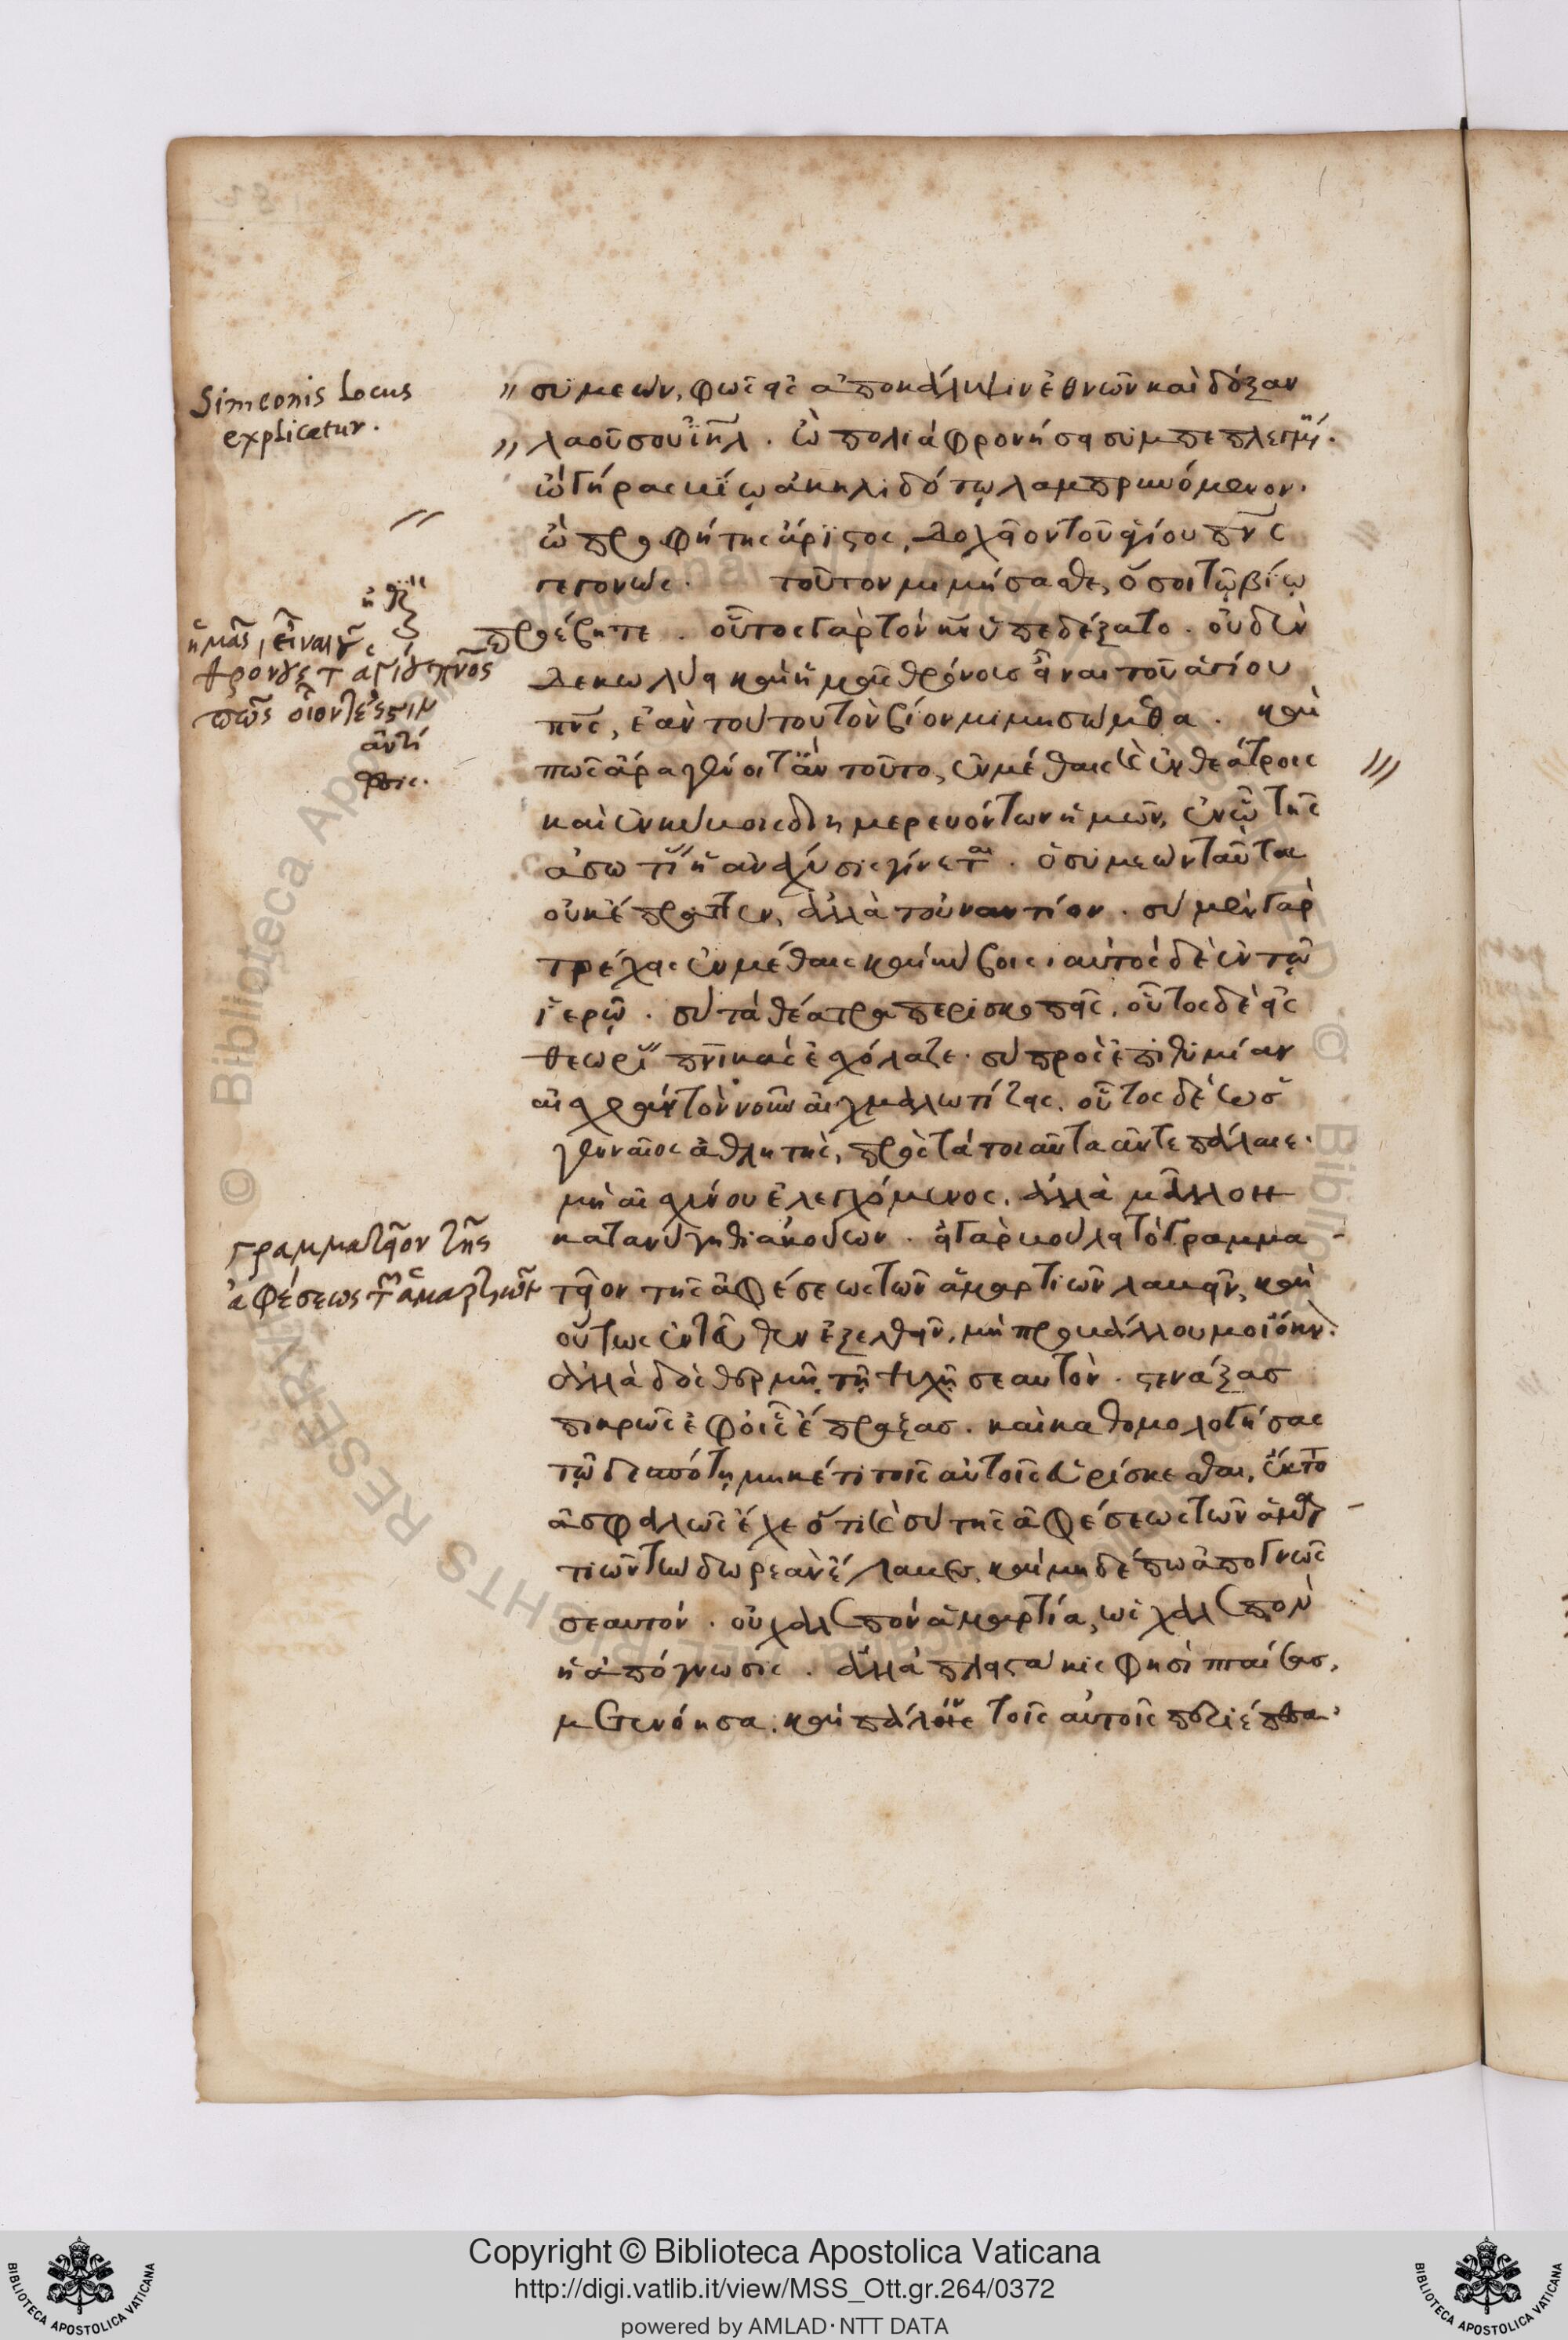 Simeonis Locus
explicatur.
συμεὼν, φῶς εἰς ἀποκάλυψιν ἐθνῶν καὶ δόξαν
λαοῦ σου ἰῆλ. ὢ πολιὰ φρονήσει συμπεπλεγμένη.
ὢ γῆρας βίῳ ἀκηλιδότῳ λαμπρυνόμενον.
ὢ προφήτης ἄριστος, δοχεῖον τοῦ ἁγίου πνς
γεγονώς. τοῦτον μιμήσασθε, ὅσοι τῷ βίῳ
προέβητε. οὗτος γὰρ τὸν κν ὑπεδέξατο. οὐδὲν
δὲ κωλύει καὶ ἡμᾶς θρόνους εἶναι τοῦ ἁγίου
πνς, ἐὰν τούτου τὸν βίον μιμησώμεθα. καὶ
πῶς ἄρα γένοιτ ἂν τοῦτο, ἐν μέθαις καὶ ἐν θεάτροις
καὶ ἐν κύβοις διημερευόντων ἡμῶν, ἐν ᾧ τῆς
ἀσωτίας ἡ ἀνάχυσις γίνεται. ὁ συμεὼν ταῦτα
οὐκ ἔπραττεν, ἀλλὰ τοὐναντίον. σὺ μὲν γὰρ
τρέχεις ἐν μέθαις καὶ κύβοις. αὐτὸς δὲ ἐν τῷ
ἱερῷ. σὺ τὰ θέατρα περισκοπεῖς. οὗτος δὲ εἰς
θεωρίας πνικὰς ἐσχόλαζε. σὺ πρὸς ἐπιθυμίαν
αἰσχρὰν τὸν νοῦν αἰχμαλωτίζεις. οὗτος δὲ ὡς
γενναῖος ἀθλητὴς, πρὸς τὰ τοιαῦτα ἀντεπάλαιε.
μὴ αἰσχύνου ἐλεγχόμενος. ἀλλὰ μᾶλλον
κατανύγηθι ἀκούων. εἰ γὰρ βούλει τὸ γραμμα-
τεῖον τῆς ἀφέσεως τῶν ἁμαρτιῶν λαβεῖν, καὶ
οὕτως ἐντεῦθεν ἐξελθεῖν, μὴ προβάλλου μοι ὄκνον.
ἀλλὰ δὸς θερμῇ τῇ ψυχῇ σεαυτὸν. στενάξας
πικρῶς ἐφ οἷς ἔπραξας. καὶ καθομολογήσας
τῷ δεσπότῃ μηκέτι τοῖς αὐτοῖς εὑρίσκεσθαι, ἐκ τοῦ
ἀσφαλῶς ἔχε ὅτι καὶ σὺ τῆς ἀφέσεως τῶν ἁμαρ-
τιῶν τὴν δωρεὰν ἔλαβες, καὶ μηδέπω ἀπογνῷς
σεαυτόν. οὐ χαλεπὸν ἁμαρτία, ὡς χαλεπὸν
ἡ ἀπόγνωσις. ἀλλὰ πλειστάκις φησὶ πταίσας,
μετενόησα. καὶ πάλιν τοῖς αὐτοῖς περιέπεσα.
ἡμᾶς, εἶναι
θρόνους τ ἁγίου πνος
πῶς οἷόντ ἐστιν
ἀντὶ
γραμματεῖον τῆς
ἀφέσεως τ ἁμαρτιῶν
Copyright © Biblioteca Apostolica Vaticana
http://digi.vatlib.it/view/MSS_Ott.gr.264/0372
powered by AMLAD·NTT DATA
BIBLIOTECA APOSTOLICA VATICANA
BIBLIOTECA APOSTOLICA VATICANA